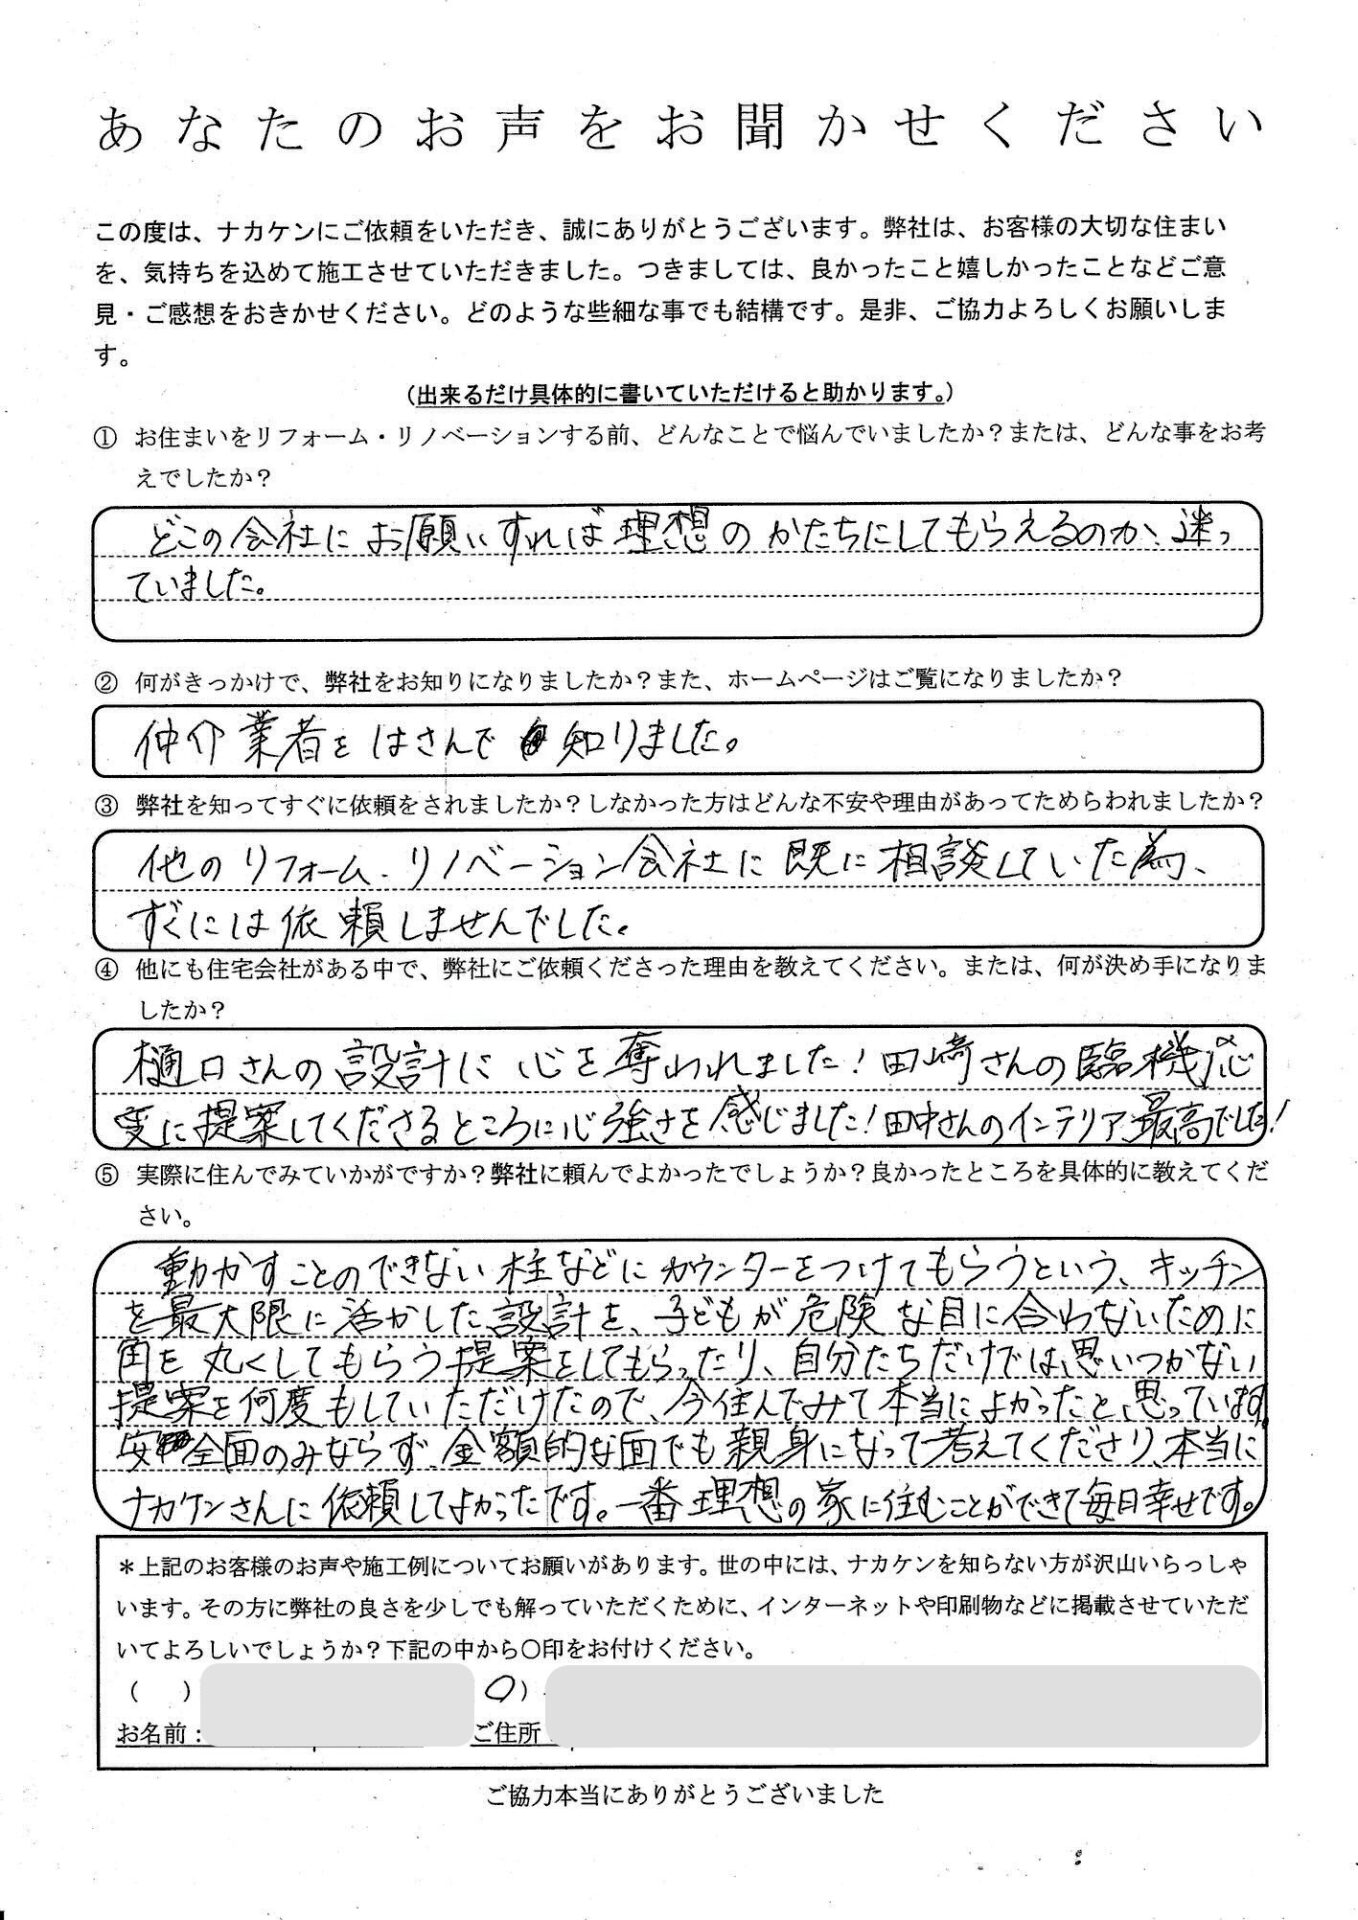 あなたのお声をお聞かせください
この度は、ナカケンにご依頼をいただき、誠にありがとうございます。弊社は、お客様の大切な住まい
を、気持ちを込めて施工させていただきました。つきましては、良かったこと嬉しかったことなどご意
見・ご感想をおきかせください。どのような些細な事でも結構です。是非、ご協力よろしくお願いしま
す。
（出来るだけ具体的に書いていただけると助かります。）
① お住まいをリフォーム・リノベーションする前、どんなことで悩んでいましたか？または、どんな事をお考
えでしたか？
どこの会社にお願いすれば理想のかたちにしてもらえるのか、迷っ
ていました。
② 何がきっかけで、弊社をお知りになりましたか？また、ホームページはご覧になりましたか？
仲介業者をはさんで知りました。
③ 弊社を知ってすぐに依頼をされましたか？しなかった方はどんな不安や理由があってためらわれましたか？
他のリフォーム、リノベーション会社に既に相談していた為、
すぐには依頼しませんでした。
④ 他にも住宅会社がある中で、弊社にご依頼くださった理由を教えてください。または、何が決め手になりま
したか？
樋口さんの設計に心を奪われました！田崎さんの臨機応
変に提案してくださるところに心強さを感じました！田中さんのインテリア最高でした！
⑤ 実際に住んでみていかがですか？弊社に頼んでよかったでしょうか？良かったところを具体的に教えてくだ
さい。
動かすことのできない柱などにカウンターをつけてもらうという、キッチン
を最大限に活かした設計を、子どもが危険な目に合わないために
角を丸くしてもらう提案をしてもらったり、自分たちだけでは思いつかない
提案を何度もしていただけたので、今住んでみて本当によかったと思っています。
安全面のみならず、金額的な面でも親身になって考えてくださり、本当に
ナカケンさんに依頼してよかったです。一番理想の家に住むことができて毎日幸せです。
＊上記のお客様のお声や施工例についてお願いがあります。世の中には、ナカケンを知らない方が沢山いらっしゃ
います。その方に弊社の良さを少しでも解っていただくために、インターネットや印刷物などに掲載させていただ
いてよろしいでしょうか？下記の中から○印をお付けください。
（　） ○）
お名前： ご住所
ご協力本当にありがとうございました